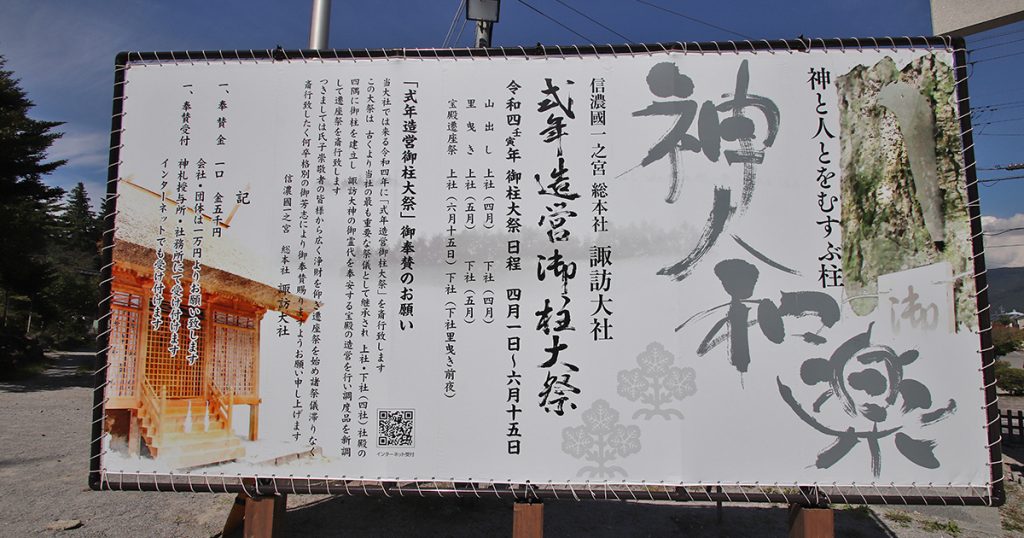 御
神と人とをむすぶ柱
神人和楽
信濃國一之宮 総本社 諏訪大社
式年造営御柱大祭
令和四壬寅年 御柱大祭 日程 四月一日～六月十五日
山出し 上社（四月） 下社（四月）
里曳き 上社（五月） 下社（五月）
宝殿遷座祭 上社（六月十五日） 下社（下社里曳き前夜）
「式年造営御柱大祭」御奉賛のお願い
当大社では来る令和四年に「式年造営御柱大祭」を斎行致します
この大祭は 古くより当社の最も重要な祭儀として継承され 上社・下社（四社）社殿の
四隅に御柱を建立し 諏訪大神の御霊代を奉安する宝殿の造営を行い調度品を新調
して遷座祭を斎行致します
つきましては氏子崇敬者の皆様から広く浄財を仰ぎ遷座祭を始め諸祭儀滞りなく
斎行致したく何卒格別の御芳志により御奉賛賜りますようお願い申し上げます
信濃國一之宮 総本社 諏訪大社
記
一、奉賛金 一口 金五千円
会社・団体は一万円よりお願い致します
一、奉賛受付 神札授与所・社務所にて受け付けます
インターネットでも受け付けます
インターネット受付